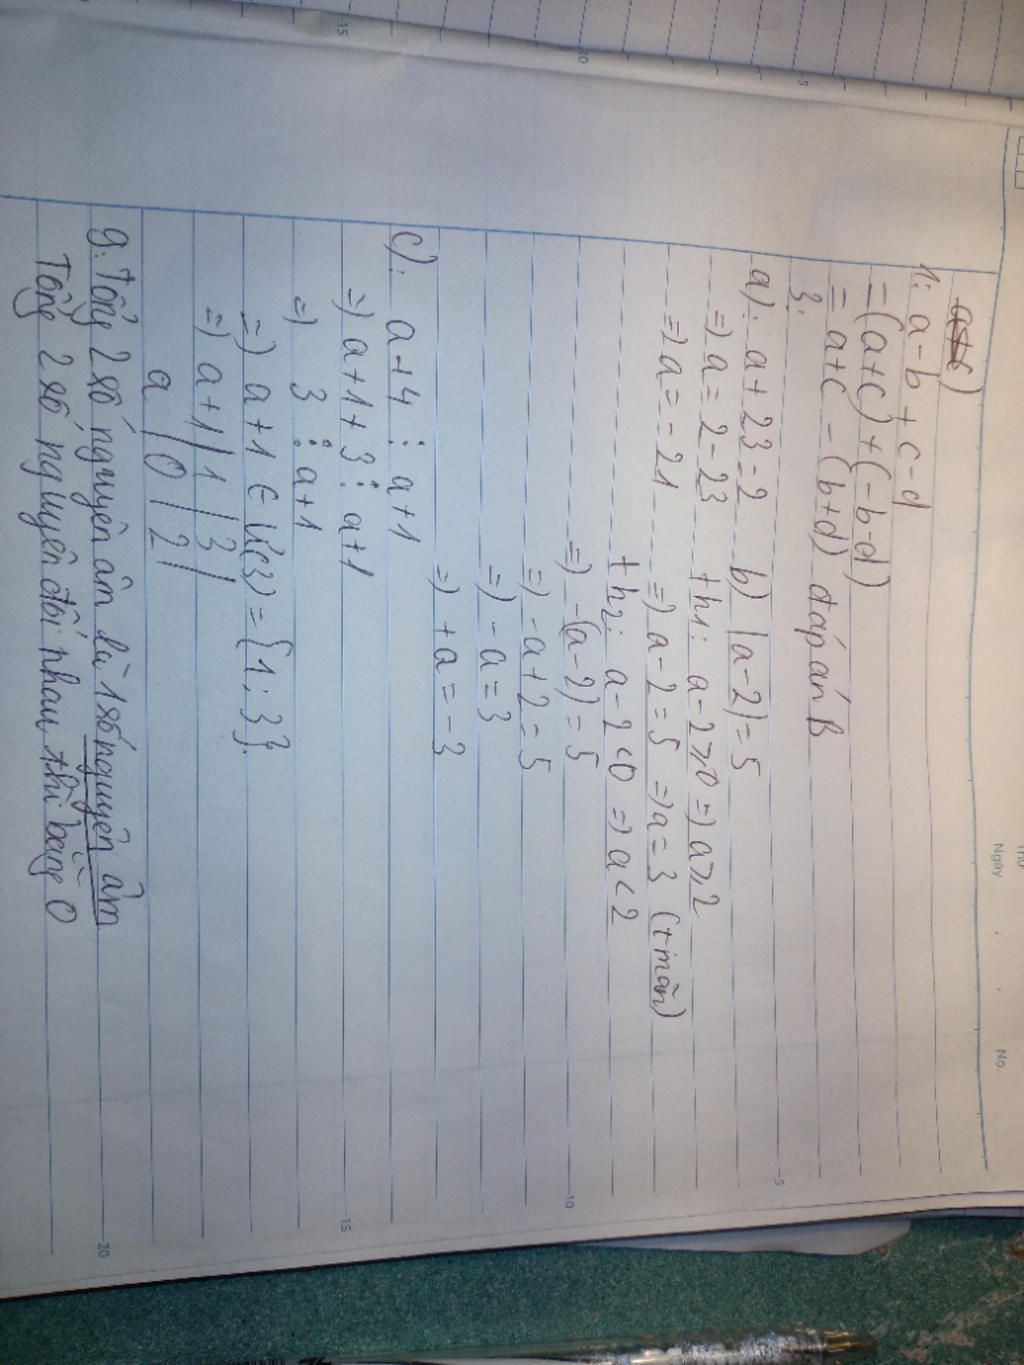 Thứ
Ngày
No.
1: a-b+c-d
=(a+c)+(-b-d)
= a+c-(b+d) đáp án B
3:
a): a+23=2 b) |a-2|=5
=) a=2-23 +h1: a-2⩾0 =) a⩾2
=) a=-21 =) a-2=5 =) a=3 (+mãn)
+h2: a-2<0 =) a<2
=) -(a-2)=5
=) -a+2=5
=) -a=3
=) +a=-3
c): a+4⋮a+1
=) a+1+3⋮a+1
=) 3⋮a+1
=) a+1∈Ư(3)={1;3}.
=) a+1|1|3|
a|0|2|
g: Tổng 2 số nguyên âm là 1 số nguyên âm
Tổng 2 số nguyên đối nhau thì bằng 0
5
10
15
20
5
10
15